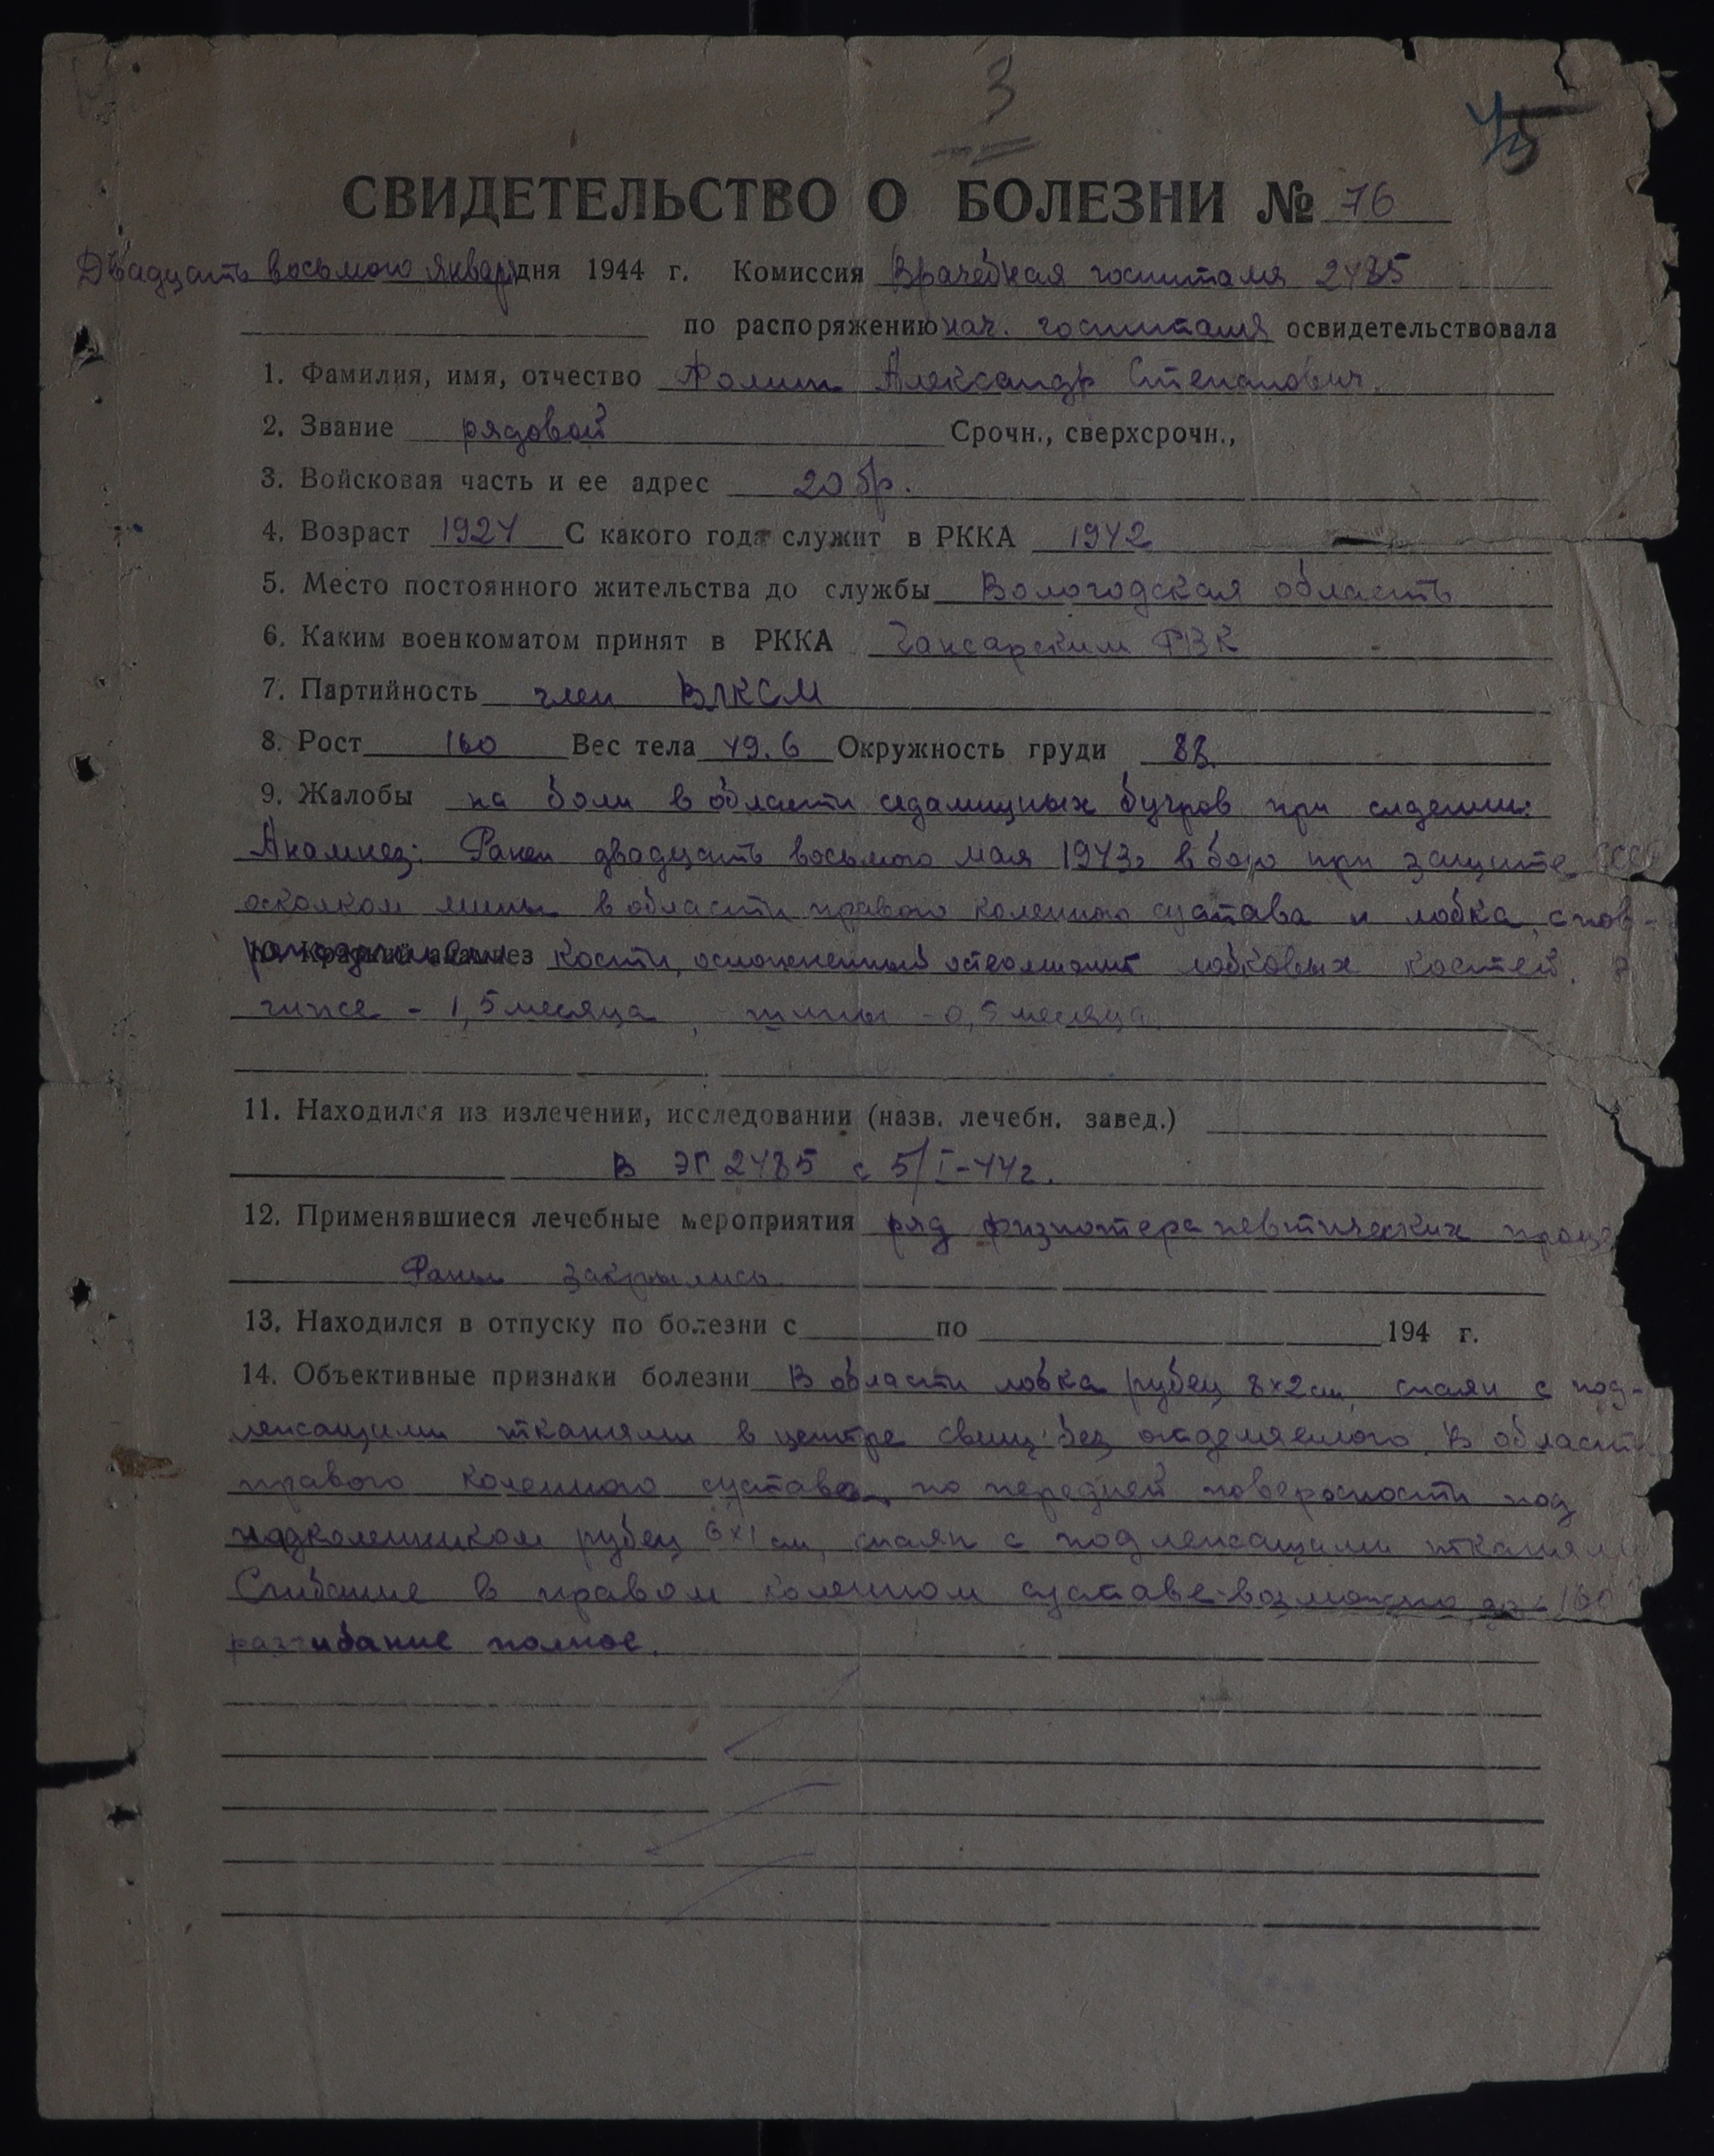 3
СВИДЕТЕЛЬСТВО О БОЛЕЗНИ № 76
Двадцать восьмого январ дня 1944 г. Комиссия Врачебная госпиталя 2485
по распоряжению нач. госпиталя освидетельствовала
1. Фамилия, имя, отчество Александр Степанович.
2. Звание рядовой Срочн., сверхсрочн.,
3. Войсковая часть и ее адрес 20 бр.
4. Возраст 1924 С какого года служит в РККА 1942
5. Место постоянного жительства до службы Вологодская область
6. Каким военкоматом принят в РККА РВК
7. Партийность член ВЛКСМ
8. Рост 160 Вес тела 49.6 Окружность груди 88
9. Жалобы на боли в области седалищных бугров при сидении.
Анамнез: Ранен двадцать восьмого мая 1943г в бою при защите СССР
осколком мины в области правого коленного сустава и лобка, с пов-
10. Краткий анамнез кости, осложненный остеомиелит лобковых костей. В
гипсе - 1,5 месяца, шины - 0,5 месяца.
11. Находился из излечении, исследовании (назв. лечебн. завед.)
В ЭГ 2485 с 5/I-44г.
12. Применявшиеся лечебные мероприятия ряд физиотерапевтических проце
Раны закрылись
13. Находился в отпуску по болезни с по 194 г.
14. Объективные признаки болезни В области лобка рубец 8×2 см, спаян с под-
лежащими тканями в центре свищ без отделяемого. В област
правого коленного сустава по передней поверхности под
надколенником рубец 6×1 см, спаян с подлежащими тканями
Сгибание в правом коленном суставе возможно до
разгибание полное.